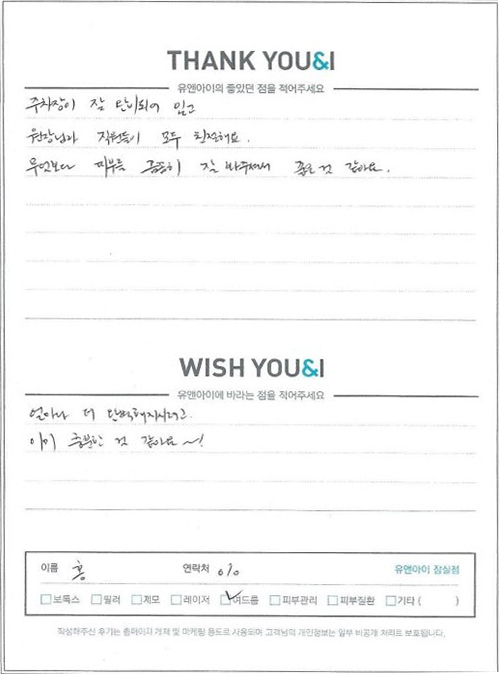 THANK YOU&I
유앤아이의 좋았던 점을 적어주세요
주차장이 잘 되어 있고
원장님과 직원들이 모두 친절해요.
무엇보다 피부를 꼼꼼히 잘 봐주셔서 좋은 것 같아요.
WISH YOU&I
유앤아이에 바라는 점을 적어주세요
얼마나 더 완벽해지시려고.
이미 충분한 것 같아요~!
이름 홍 연락처 010 유앤아이 잠실점
보톡스 필러 제모 레이저 여드름 피부관리 피부질환 기타 ( )
작성해주신 후기는 홈페이지 게재 및 마케팅 용도로 사용되며 고객님의 개인정보는 일부 비공개 처리로 보호됩니다.